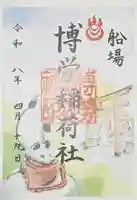 船場
博労稲荷社
令和八年四月十九日